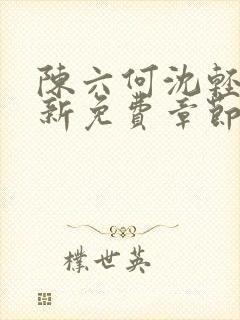 陳六何沈輕
新免費章節
樸世英